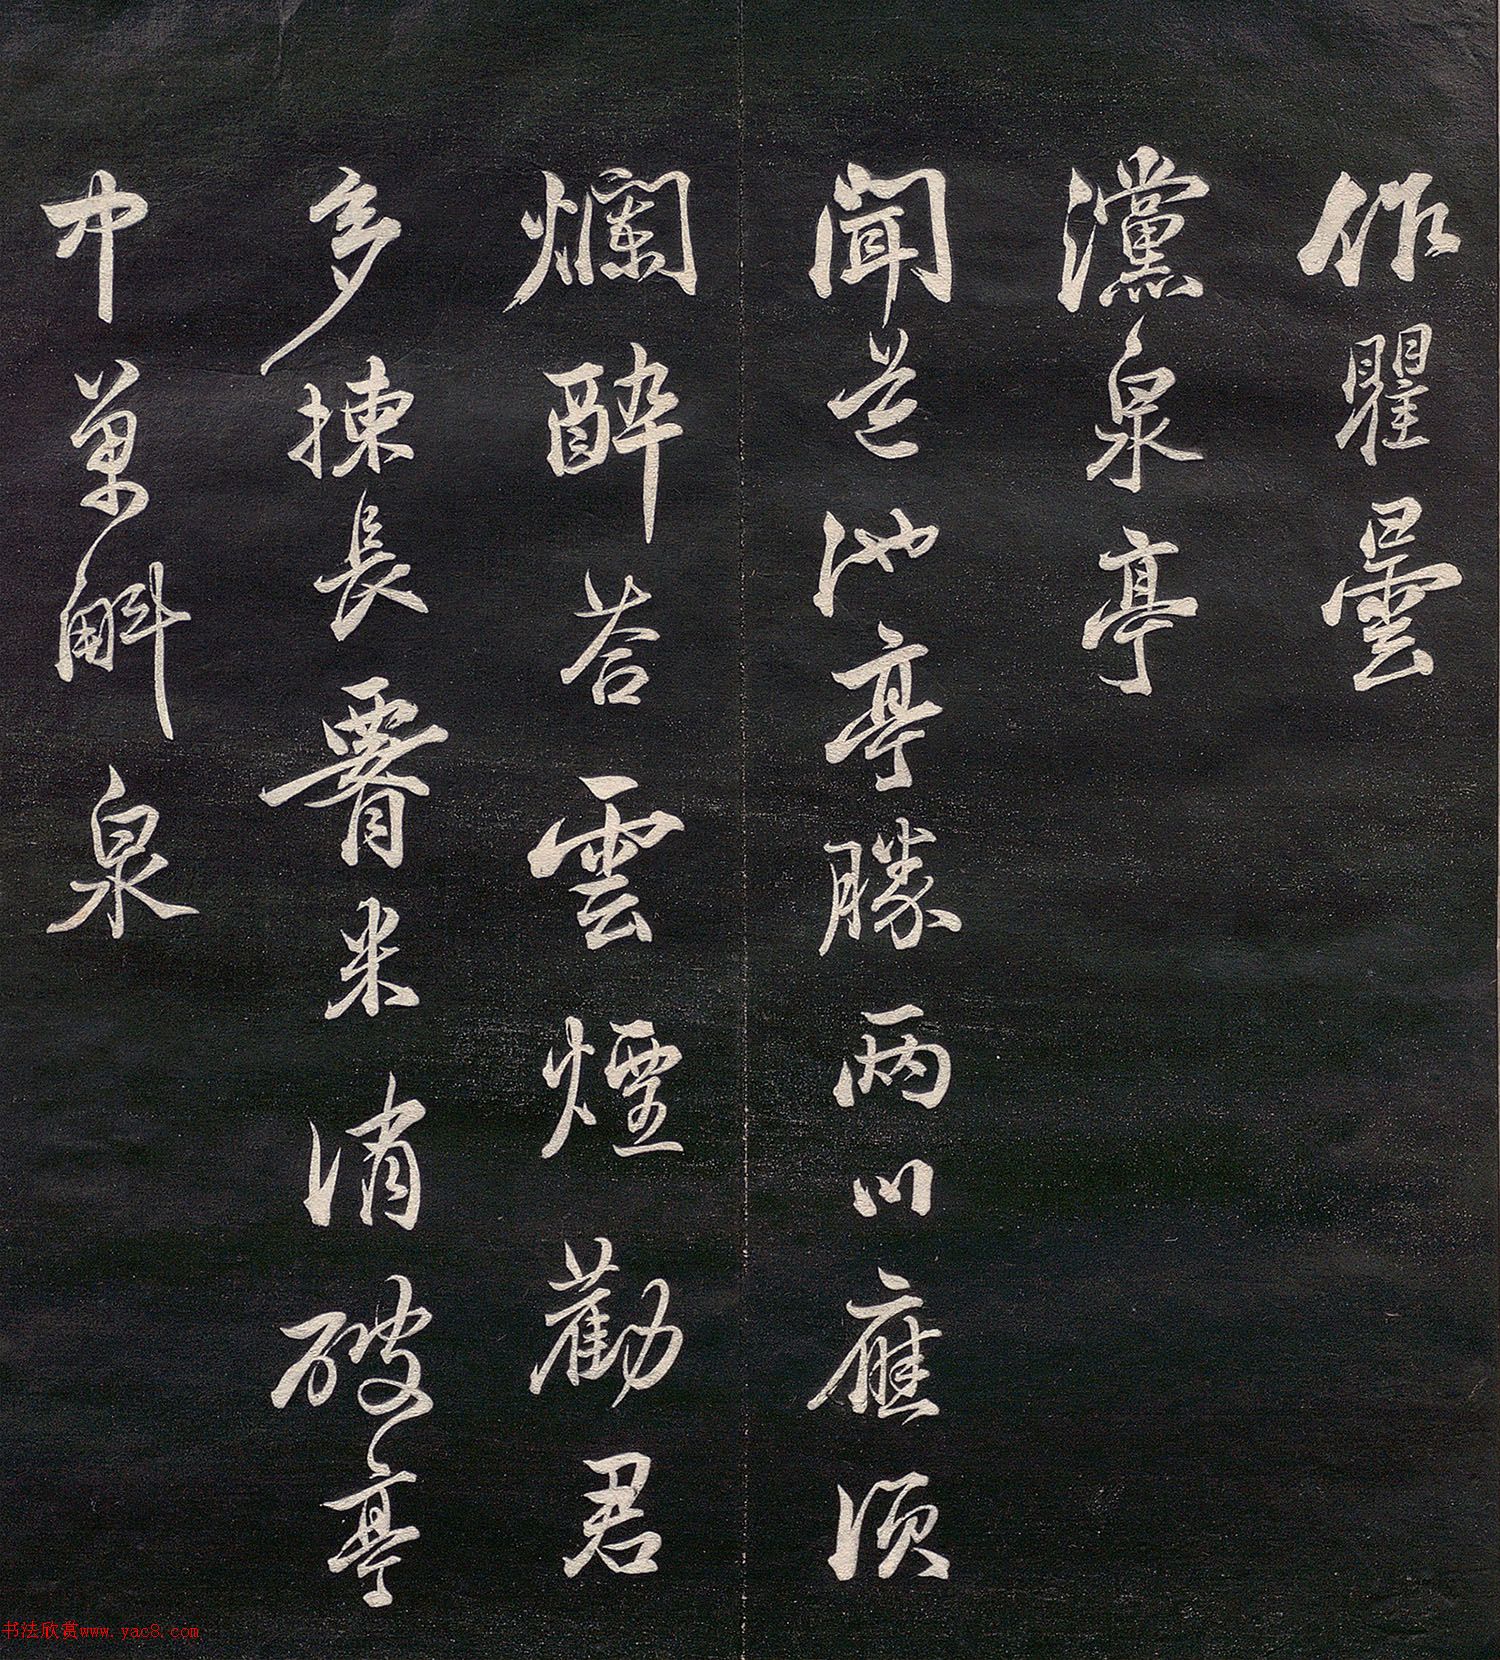 作瞿曇
灙泉亭
聞道池亭勝两川應須
爛醉荅雲煙勸君
多揀長腰米消破亭
中萬斛泉
书法欣赏www.yac8.com